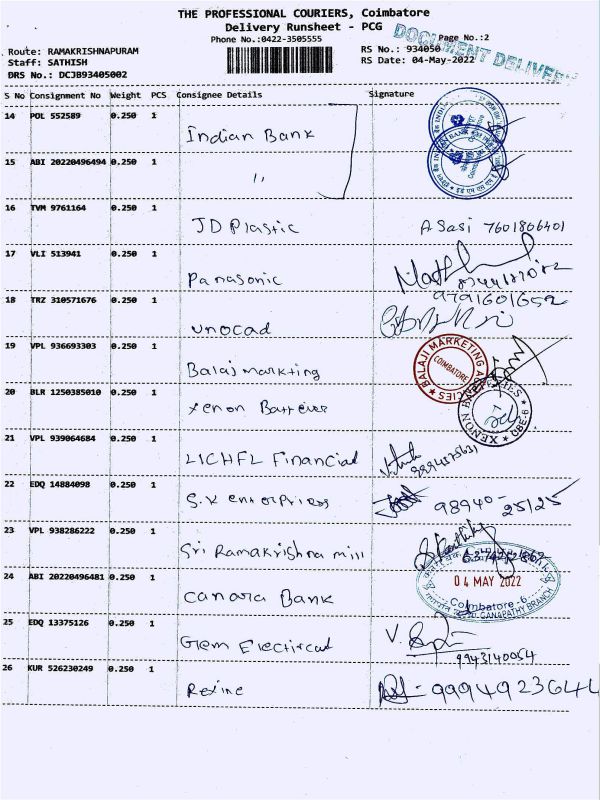 THE PROFESSIONAL COURIERS, Coimbatore
Delivery Runsheet - PCG
Phone No.:0422-3505555
Page No.:2
DOCUMENT DELIVERY
Route: RAMAKRISHNAPURAM
RS No.: 934050
Staff: SATHISH
RS Date: 04-May-2022
DRS No.: DCJB93405002
S No Consignment No Weight PCS Consignee Details Signature
14 POL 552589 0.250 1 Indian Bank
15 ABI 20220496494 0.250 1 "
16 TVM 9761164 0.250 1 JD Plastic A Sasi 7601806401
17 VLI 513941 0.250 1 Panasonic
18 TRZ 310571676 0.250 1 unocad 9791601652
19 VPL 936693303 0.250 1 Balaji markting BALAJI MARKETING COIMBATORE
20 BLR 1250385010 0.250 1 xenon Batteries XENON CBE-6
21 VPL 939064684 0.250 1 LICHFL Financial
22 EDQ 14884098 0.250 1 S.K enterprises 98940-25125
23 VPL 938286222 0.250 1 Sri Ramakrishna mill
24 ABI 20220496481 0.250 1 canara Bank 04 MAY 2022
Coimbatore-6
GANAPATHY BRANCH
25 EDQ 13375126 0.250 1 Gem Electircal V.
9943140054
26 KUR 526230249 0.250 1 Rexine 9994923644